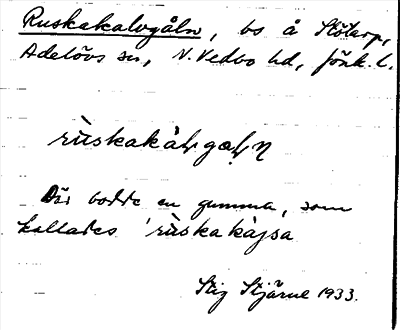 Ruskakalvgåln, bs å Stötorp,
Adelövs sn, N. Vedbo hd, Jönk. l.
rùskakàɭvgæɭn
Där bodde en gumma, som
kallades 'rùska kàjsa
Stig Stjärne 1933.